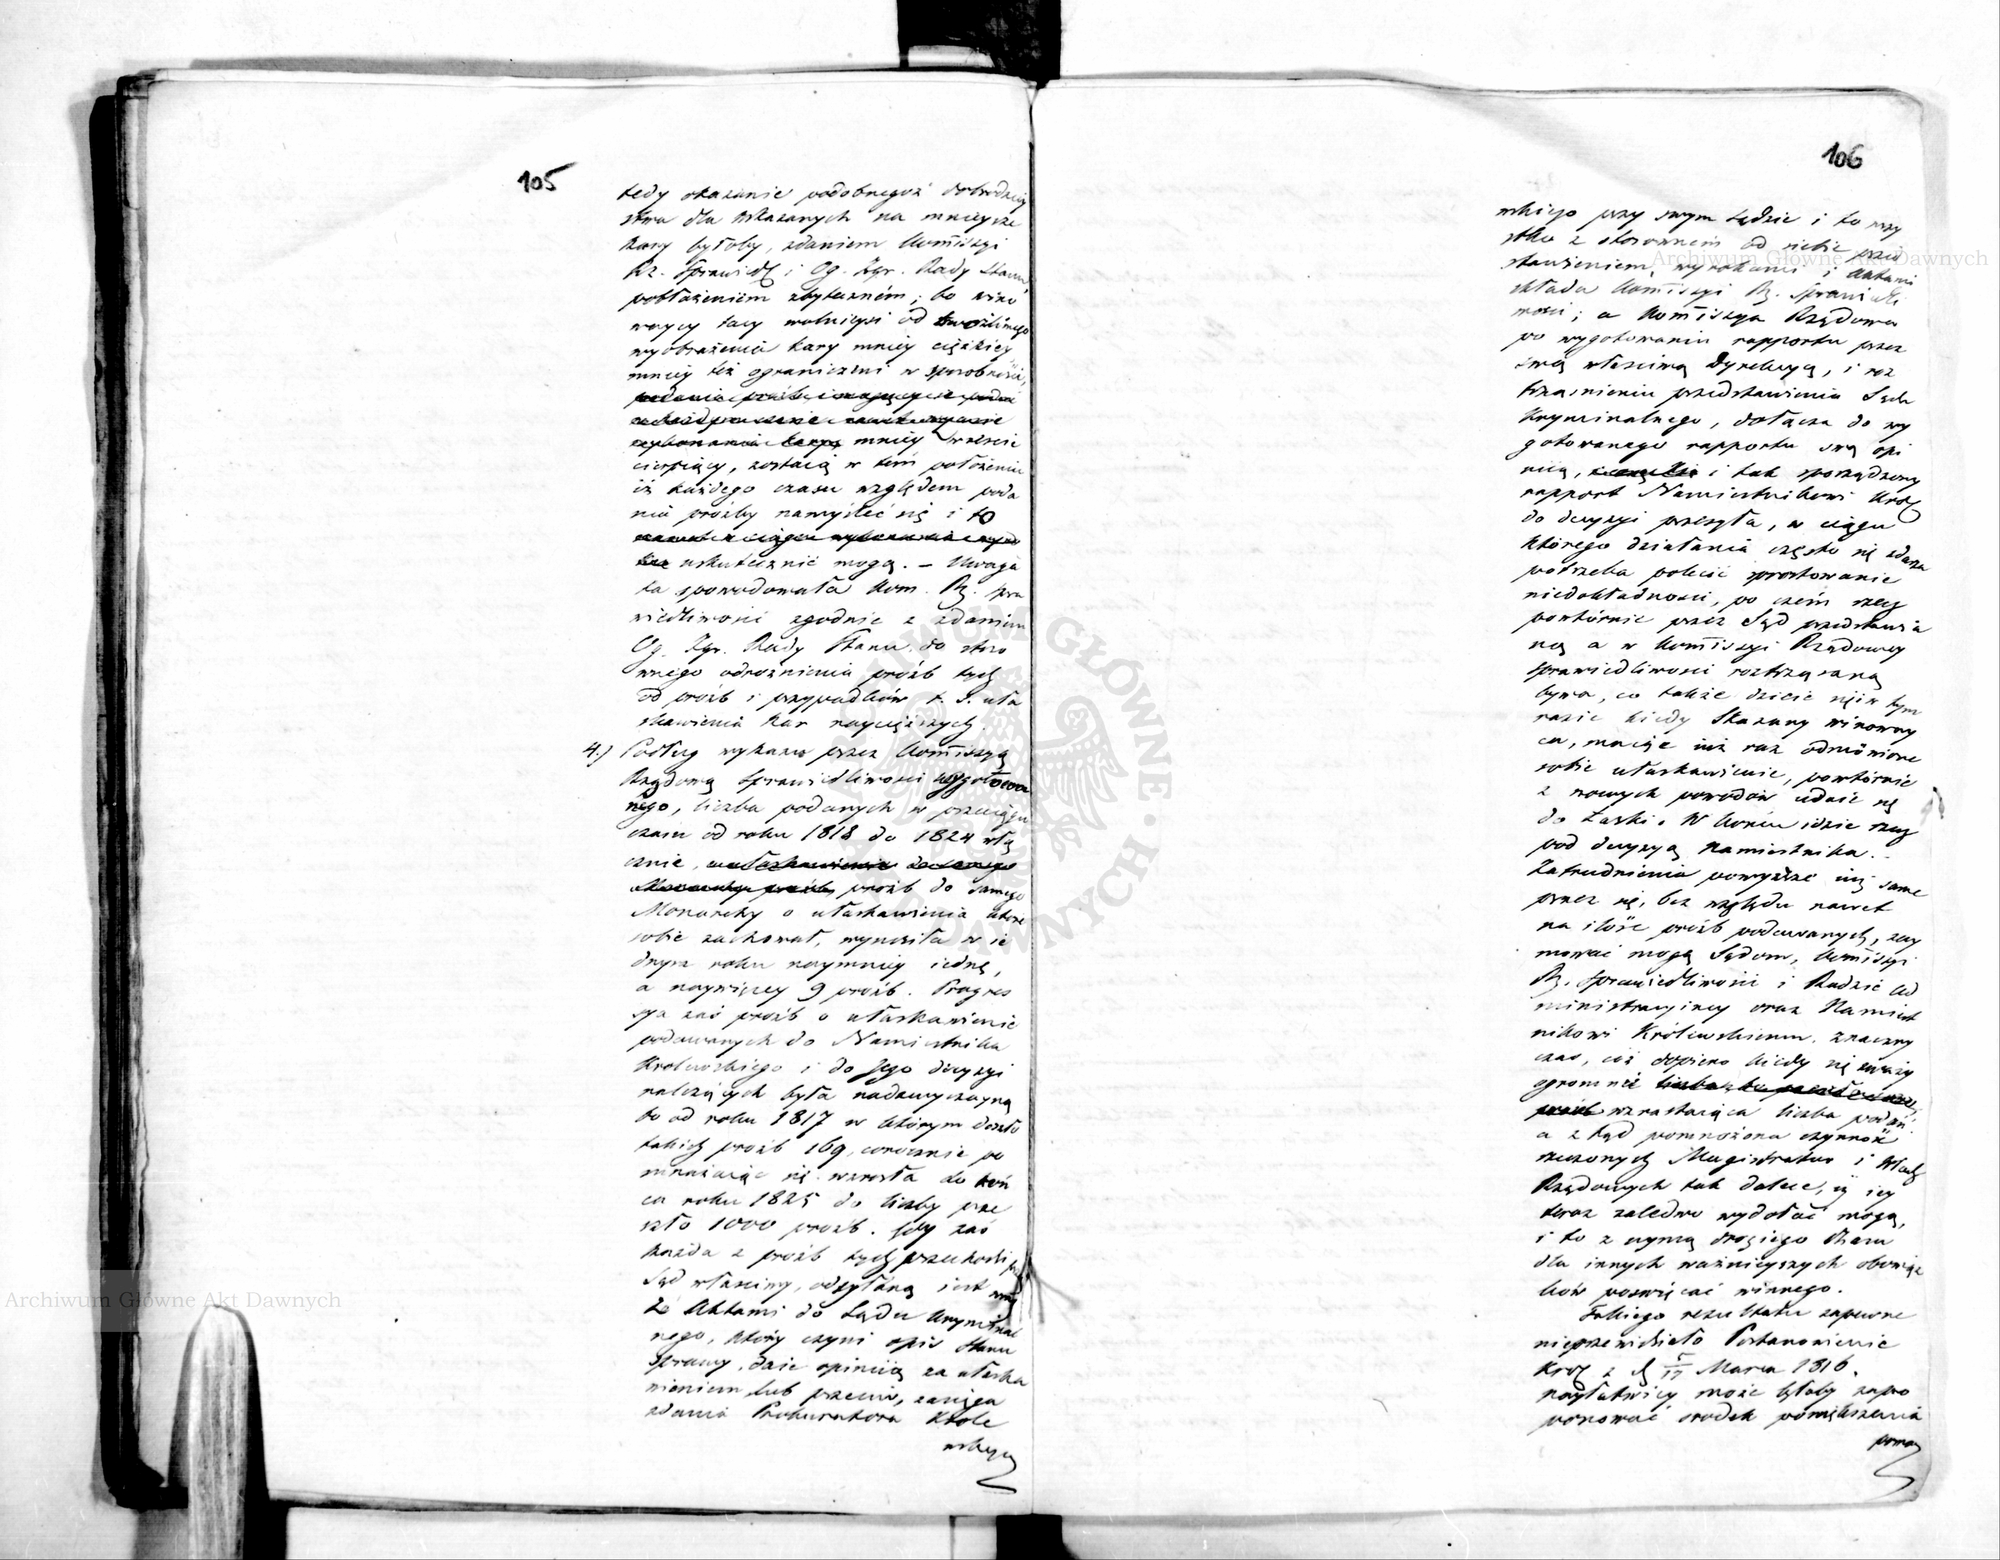 105
tedy okazanie podobnegoż dobrodziey
stwa dla skazanych na mnieysze
kary byłoby, zdaniem Kommissyi
Rz. Sprawiedl. i Og. Zgr. Rady Stanu,
pobłażeniem zbytecznem; bo wino
waycy tacy wolnieysi od
wyobrażenia kary mniey ciężkiey
mniey też ograniczeni w sposobności,
mniey
cierpiący, zostaią w tem położeniu
iż każdego czasu względem poda
nia prośby namyśleć się i to
uskutecznić mogą. – Uwaga
ta spowodowała Kom. Rz. Spra
wiedliwości zgodnie z zdaniem
Og. Zgr. Rady Stanu do stoso
wnego odróżnienia próśb tych
od próśb i przypadków t. s. uła
skawienia kar naycięższych.
4.) Podług wykazu przez Kommissyą
Rządową Sprawiedliwości wygotowa
nego, liczba podanych w przeciągu
czasu od roku 1818 do 1824 włą
cznie, próśb do samego
Monarchy o ułaskawienia które
sobie zachował, wynosiła w ie
dnym roku naymniey iedną,
a naywięcey 9 próśb. Progres
sya zaś próśb o ułaskawienie
podawanych do Namiestnika
Królewskiego i do Jego decyzyi
należących była nadzwyczayną
bo od roku 1817 w którym doszło
takich próśb 169, corocznie po
mnażaiąc się wzrosła do koń
ca roku 1825 do liczby prze
szło 1000 próśb. Gdy zaś
każda z próśb tych przechodzi przez
Sąd właściwy, odsyłaną iest wraz
z Aktami do Sądu Kryminal
nego, który czyni opis stanu
sprawy, daie opinią za ułaska
wieniem lub przeciw, zasięga
zdania Prokuratora Króle
wskiego
106
wskiego przy swym Sądzie i to wszy
stko z stosownem od siebie przed
stawieniem, wyrokami i Aktami
składa Kommissyi Rz. Sprawiedli
wości; a Kommissya Rządowa
po wygotowaniu rapportu przez
swą właściwą Dyrekcyą, i roz
trząśnieniu przedstawienia Sądu
Kryminalnego, dołącza do wy
gotowanego rapportu swą opi
nią, i tak sporządzony
rapport Namiestnikowi Król.
do decyzyi przesyła, w ciągu
którego działania często się zdarza
potrzeba polecić sprostowanie
niedokładności, po czem rzecz
powtórnie przez Sąd przedstawia
ną a w Kommissyi Rządowey
Sprawiedliwości roztrząsaną
bywa, co także dzieie się i w tym
razie kiedy skazany winoway
ca, maiąc iuż raz odmówione
sobie ułaskawienie, powtórnie
z nowych powodów udaie się
do łaski. W końcu idzie rzecz
pod decyzyą Namiestnika.
Zatrudnienia powyższe iuż same
przez się, bez względu nawet
na ilość próśb podawanych, zay
mować mogą Sądom, Kommissyi
Rz. Sprawiedliwości i Radzie Ad
ministracyiney oraz Namiest
nikowi Królewskiemu, znaczny
czas, cóż dopiero kiedy się zważy
ogromnie
wzrastaiąca liczba podań
a z tąd pomnożona czynność
rzeczonych Magistratur i Władz
Rządowych tak dalece, iż iey
teraz zaledwo wydołać mogą,
i to z uymą drogiego czasu
dla innych ważnieyszych obowiąz
ków poświęcać winnego.
Takiego rezultatu zapewne
nieprzewidziało Postanowienie
Król. z d. 5/17 Marca 1816.
nayłatwiey może byłoby zapro
ponować środek powiększenia